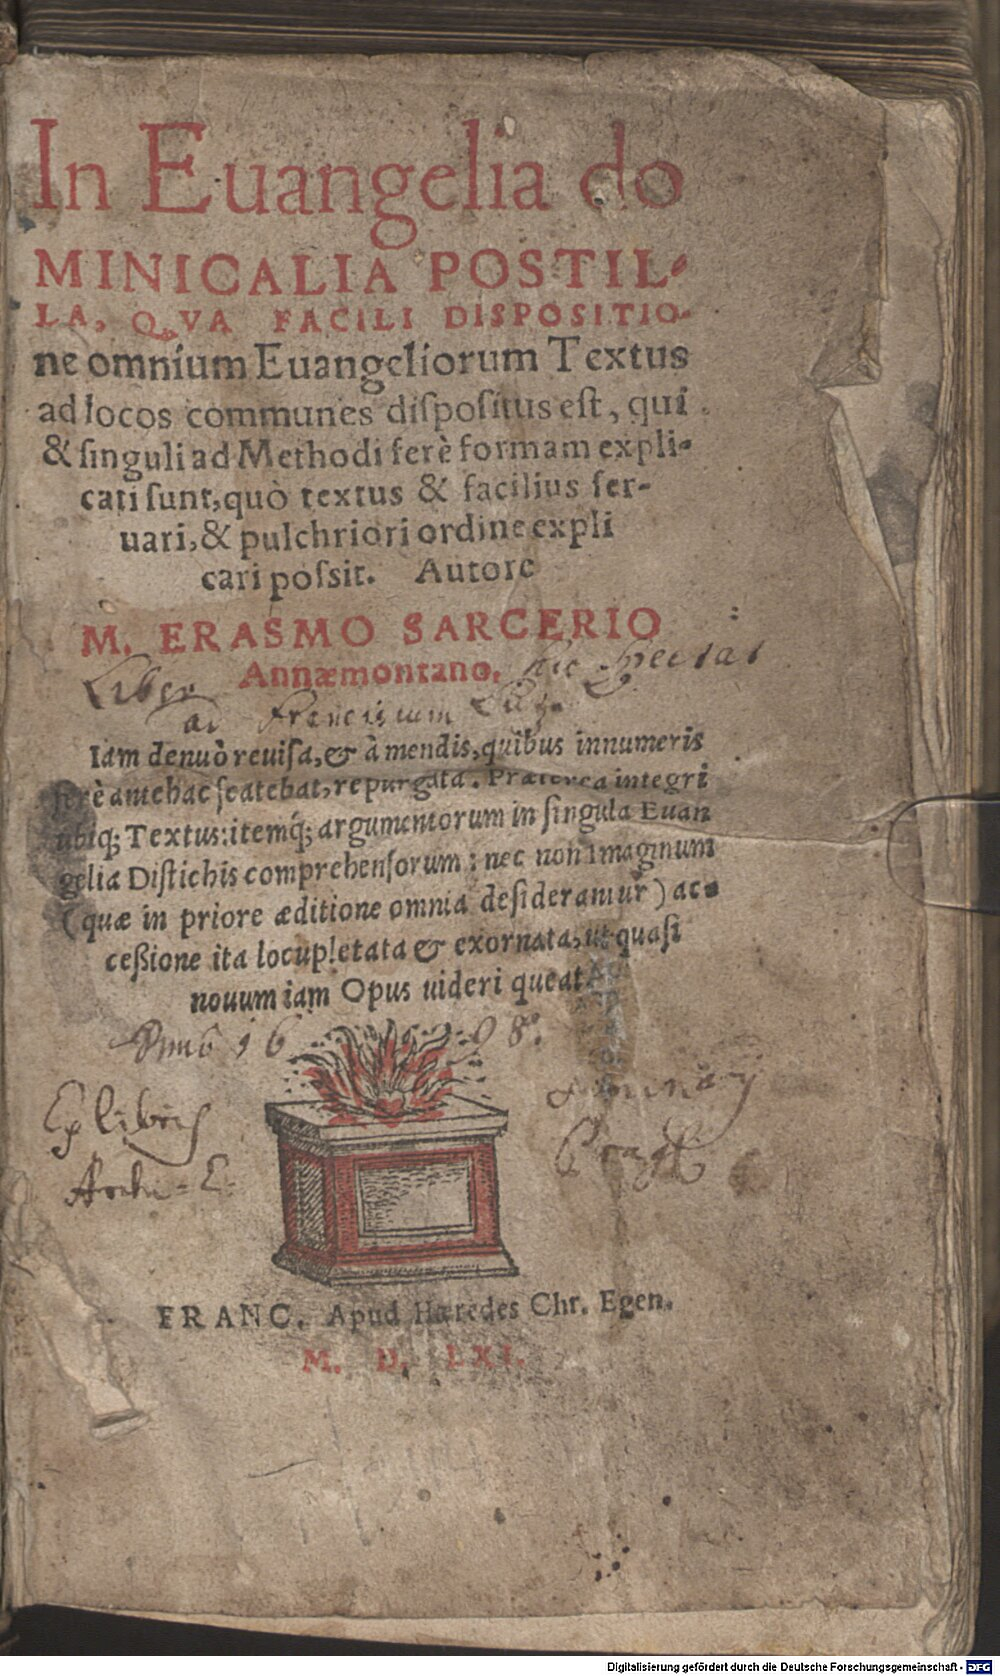 In Euangelia do
MINICALIA POSTIL-
LA, QVA FACILI DISPOSITIO-
ne omnium Euangeliorum Textus
ad locos communes dispositus est, qui
& singuli ad Methodi ferè formam expli-
cati sunt, quò textus & facilius ser-
uari, & pulchriori ordine expli
cari possit. Autore
M. ERASMO SARCERIO
Annæmontano.
Liber hic spectat
ad Franciscum
Iam denuò reuisa, & à mendis, quibus innumeris
ferè antehac scatebat, repurgata. Præterea integri
ubiq; Textus: itemq́; argumentorum in singula Euan
gelia Distichis comprehensorum: nec non imaginum
(quæ in priore æditione omnia desiderantur) ac-
cessione ita locupletata & exornata, ut quasi
nouum iam Opus uideri queat
16 98
Ex libris
Archi-E.
FRANC. Apud Hæredes Chr. Egen.
M. D. LXI.
Digitalisierung gefördert durch die Deutsche Forschungsgemeinschaft - DFG